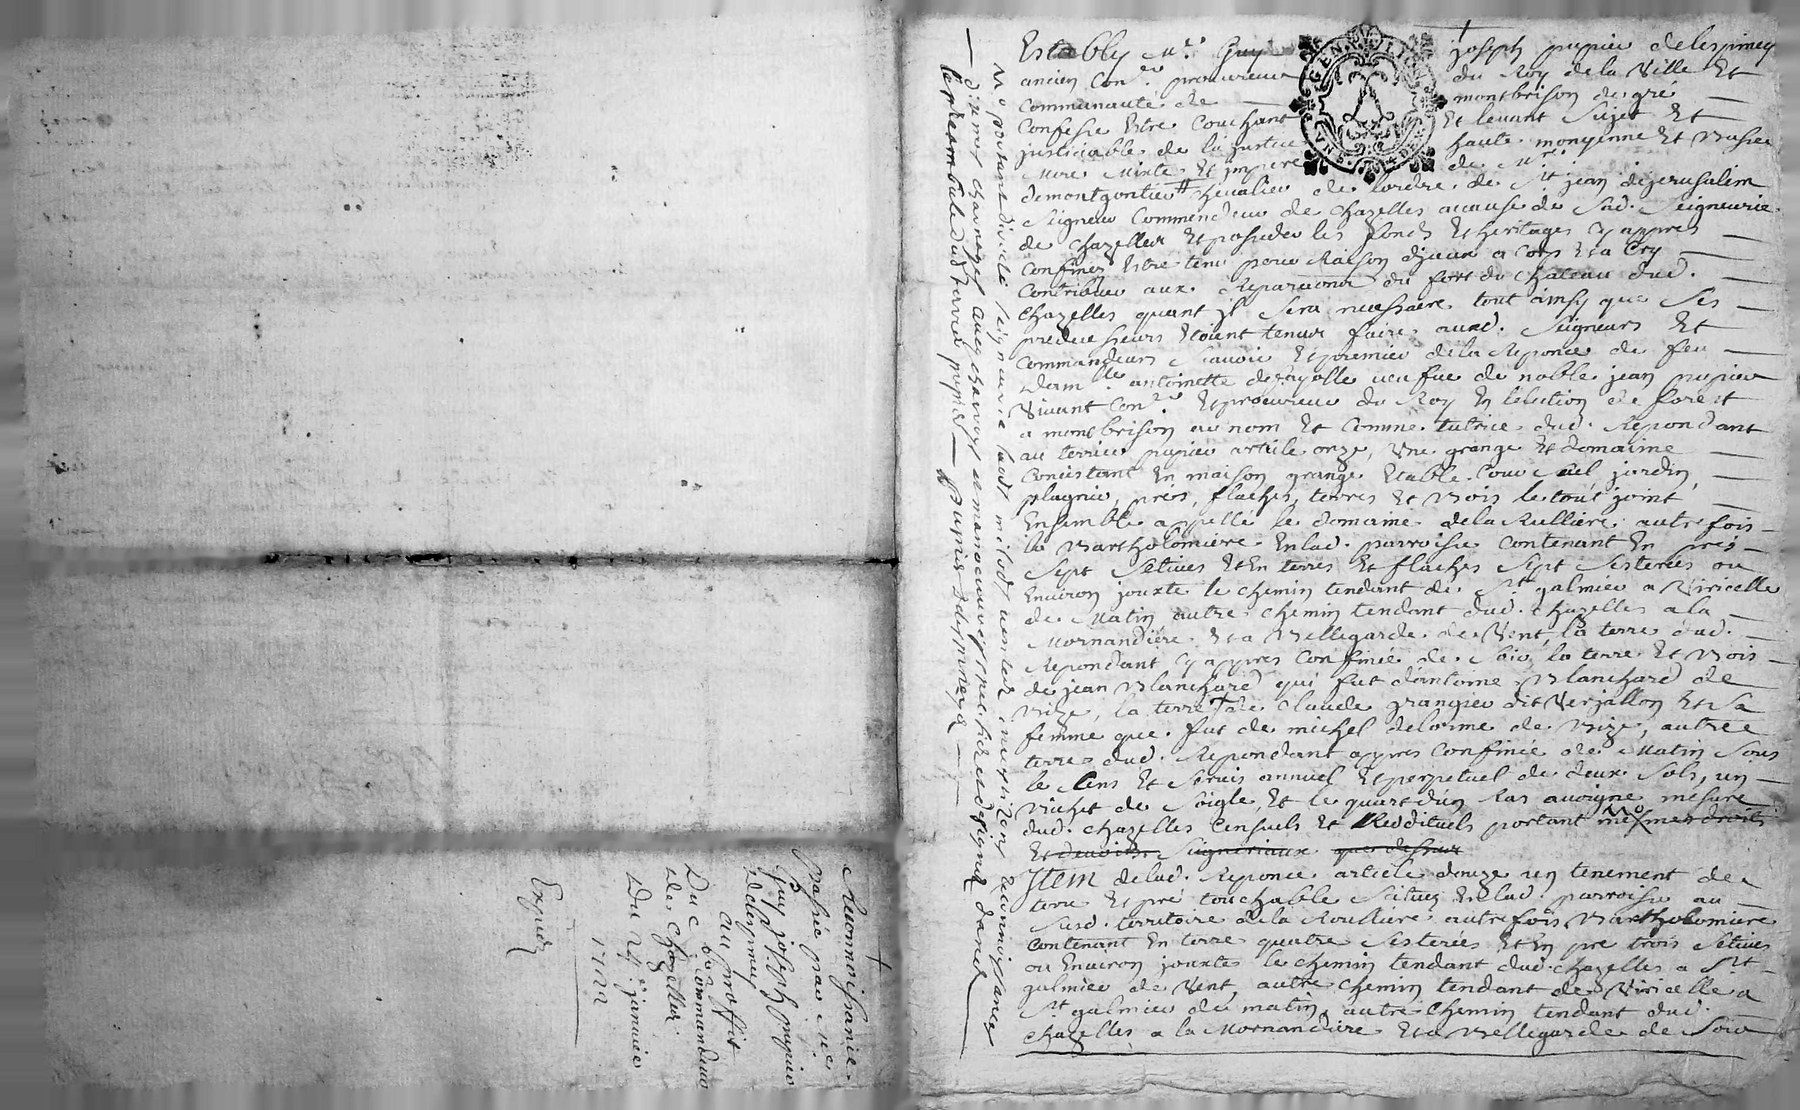 Establÿ Mre Guÿ joseph pupier delespiney
ancien Coner procureur du Roy de la Ville Et
Communauté de montbrison de gre
Confesse Estre Couchant Et levant Sujet Et
justiciable de la justice haute moÿenne Et Basse
Mere Mixte Et impere de Mre
demontgontier # chevalier de lordre de St jean dejerusalem
Seigneur Commendeur de chazelles acause de Sad. Seigneurie
de chazelles Et posseder les fonds Et heritages cÿ appres
Confinez Estre tenu pour Raison dyceux a Corps Et a Crÿ
Contribuer aux Reparations du fort du chateau dud.
chazelles quant jl Sera necessaire tout ainsÿ que Ses
predecesseurs Etoient tenus faire auxd. Seigneurs Et
Commandeurs Scavoir Et premier de la Reponce de feu
Damlle antoinette defaÿolle veufue de noble jean pupier
Vivant Coner Et procureur du Roÿ En lelection de forest
a montbrison au nom Et Comme tutrice dud. Repondant
au terrier pupier article onze, Une grange Et domaine
Concistant En maison grange Etable Cour jardin,
prés, flaches, terres Et Bois le tout joint
Ensemble appellé le domaine dela Rulliere autrefois
la Bartholomiere En lad. parroisse Contenant En prés
Sept Setives Et En terres Et flaches Sept Sesterées ou
Environ jouxte le chemin tendant de St galmier a Viricelle
de Matin autre chemin tendant dud. chazelles a la
Mornandiere Et a Bellegarde de Vent, la terre dud.
Repondant cÿ appres Confinée de Soir, la terre Et Bois
de jean Blanchard qui fut dantoine Blanchard de
Bize, la terre de Claude grangier dit Verjallon Et Sa
femme que fut de michel delorme de Bize, autre
terre dud. Repondant appres Confinée de Matin Sous
le Cens Et Servis annuel Et perpetuel de deux Sols, un
Bichet de Soigle Et le quart dun Ras avoigne mesure
dud. chazelles Censuels Et Reddituels portant mesmes droits
Et devoirs Seigneriaux que dessus
Jtem delad. Reponce article douze un tenement de
terre Et pré touchable Situez En lad. parroisse au
Susd. territoire de la Roulliere autrefois Bartholomiere
Contenant En terre quatre Sesterées Et En pré trois Setives
ou Environ jouxtes le chemin tendant dud. chazelles a St
galmier de Vent, autre chemin tendant de Viricelle a
St galmier de matin, autre chemin tendant dud.
chazelles a la Mornandiere Et a Bellegarde de Soir
le preambule dud terrier pupier Pupier Delespineÿ
Reconnoissance
Passée par Mre
Guÿ joseph pupier
Delespineÿ
au proffit
Du C. commandeur
de chazelles
Du 24e janvier
Expedié
GEN